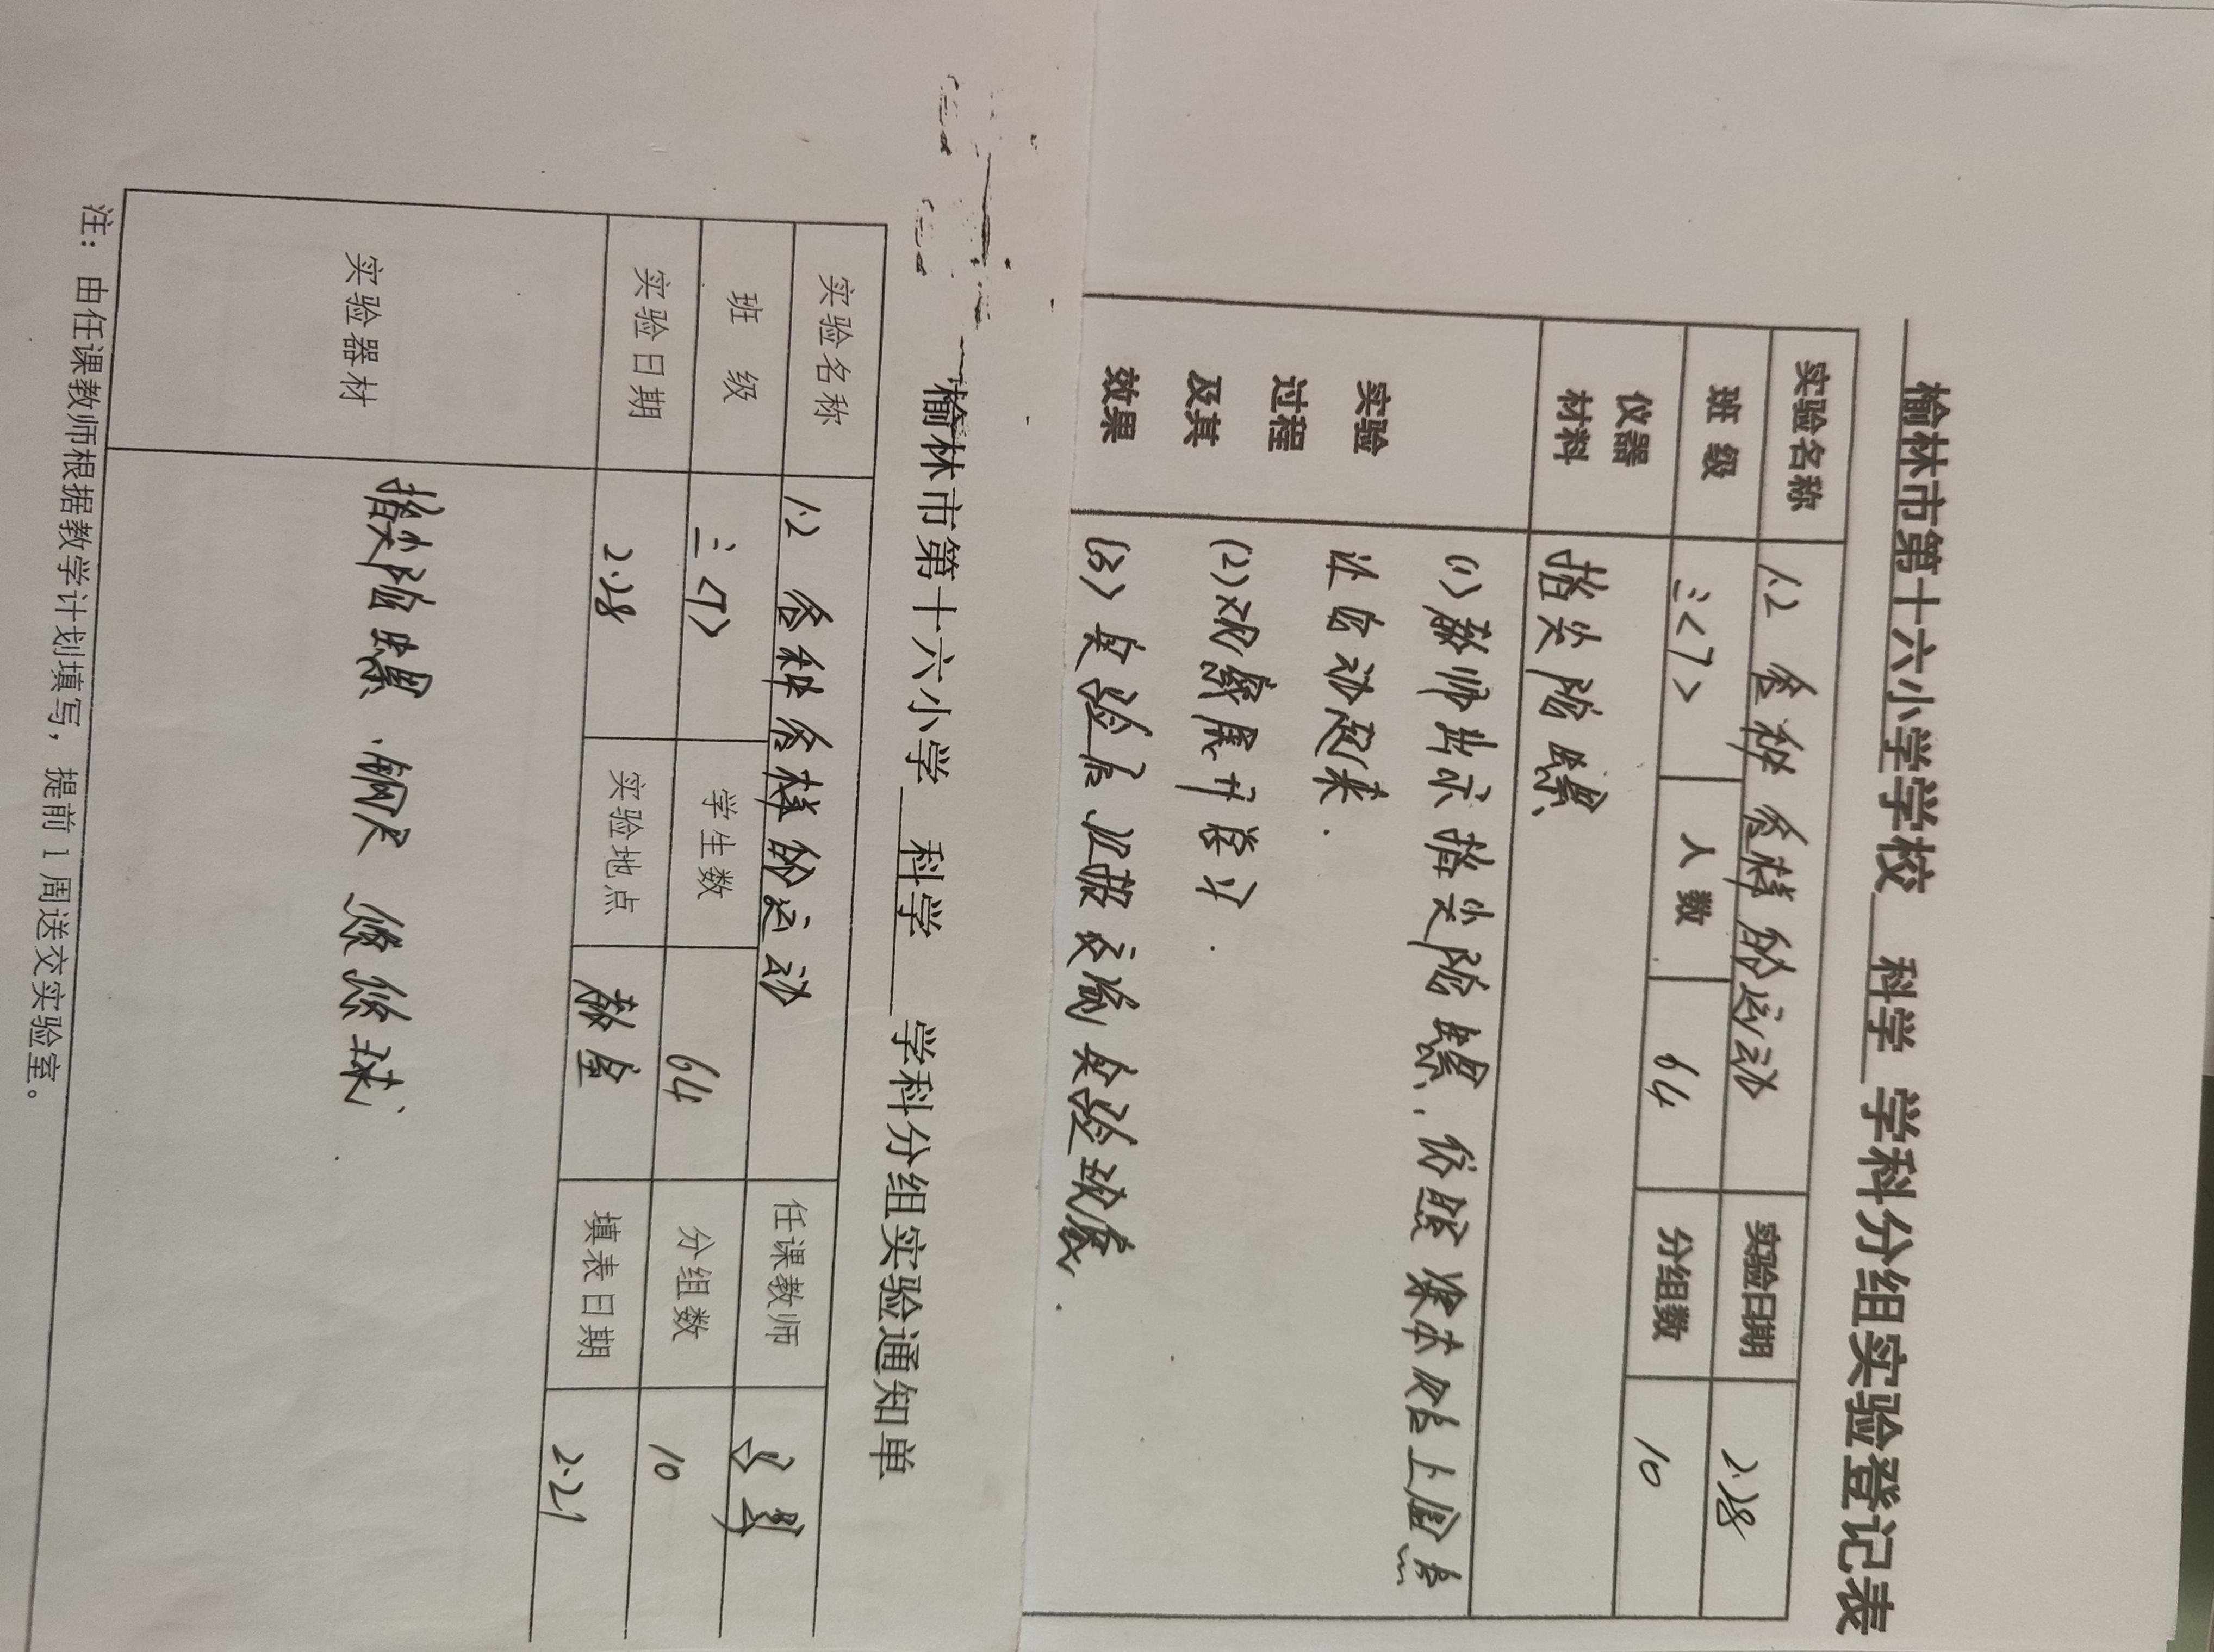 榆林市第十六小学学校 科学 学科分组实验登记表
实验名称 1.2 各种各样的运动 实验日期 2.28
班 级 三<7> 人数 64 分组数 10
仪器材料 指尖陀螺
实验过程及其效果
(1)教师出示指尖陀螺,依照课本72页上图
让自动起来.
(2)观察展开探讨.
(3)实验后,汇报交流实验现象.
榆林市第十六小学 科学 学科分组实验通知单
实验名称 1.2 各种各样的运动 任课教师
班 级 三<7> 学生数 64 分组数 10
实验日期 2.28 实验地点 教室 填表日期 2.21
实验器材 指尖陀螺、钢尺 悠悠球、
注:由任课教师根据教学计划填写,提前1周送交实验室。